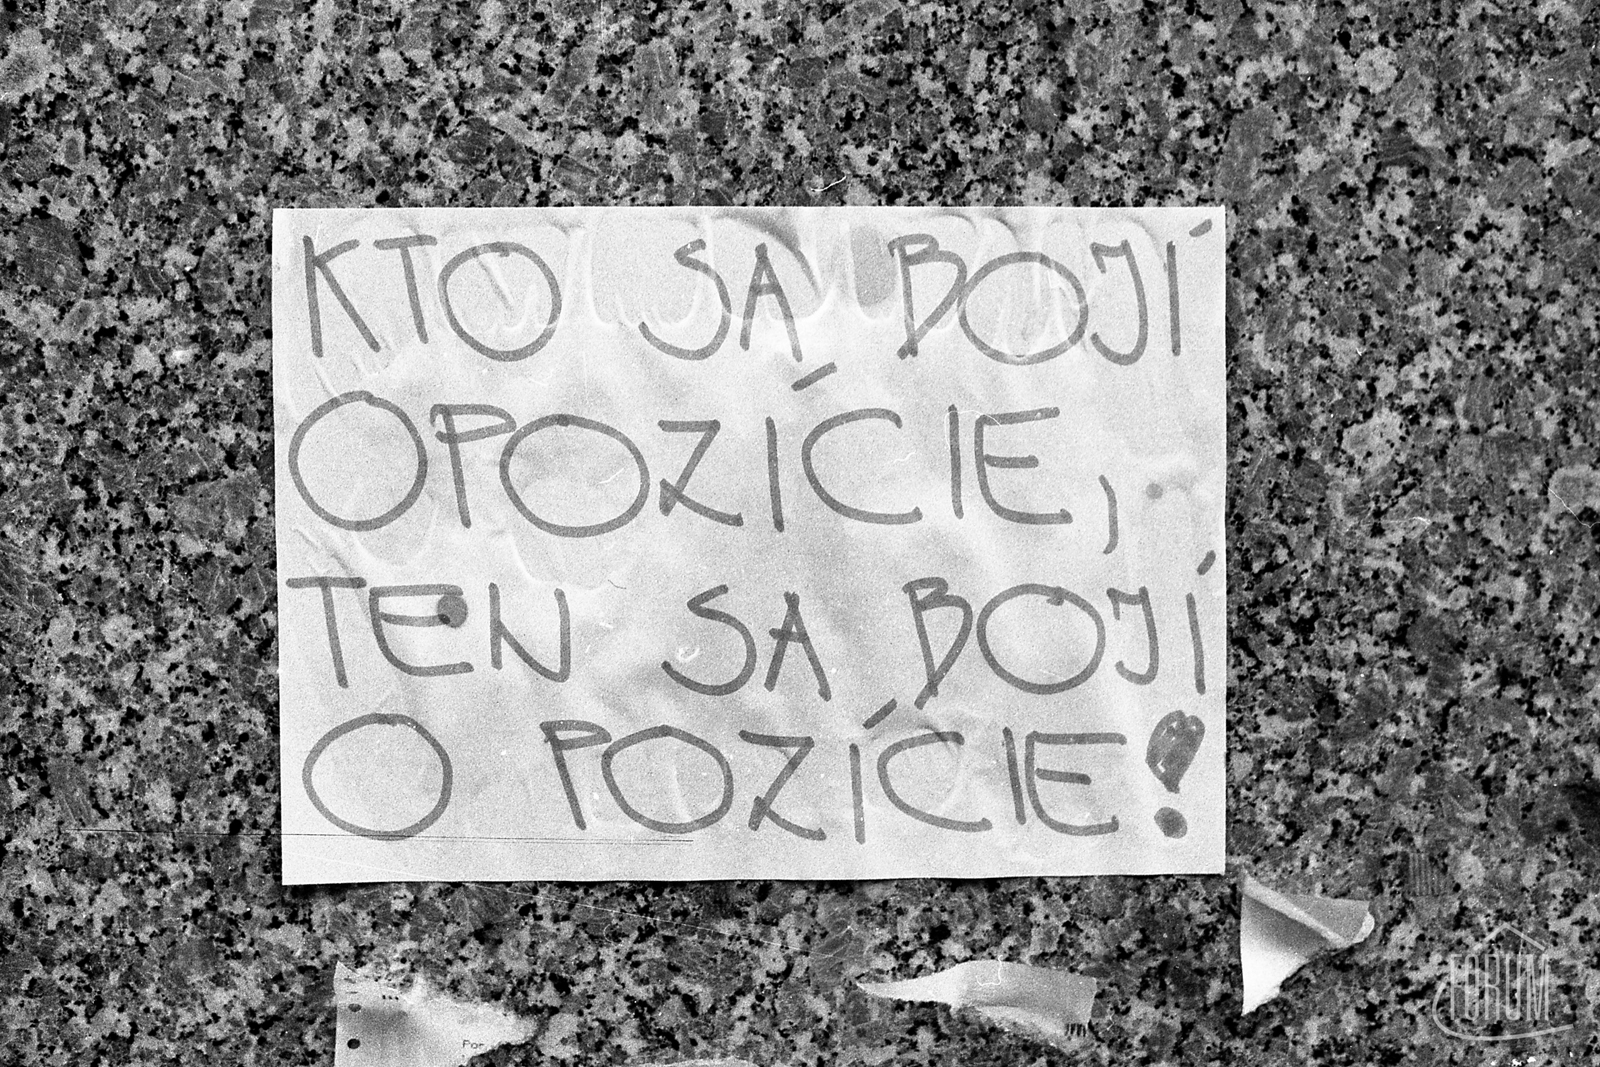 KTO SA BOJÍ
OPOZÍCIE,
TEN SA BOJÍ
O POZÍCIE!
Por
FORUM